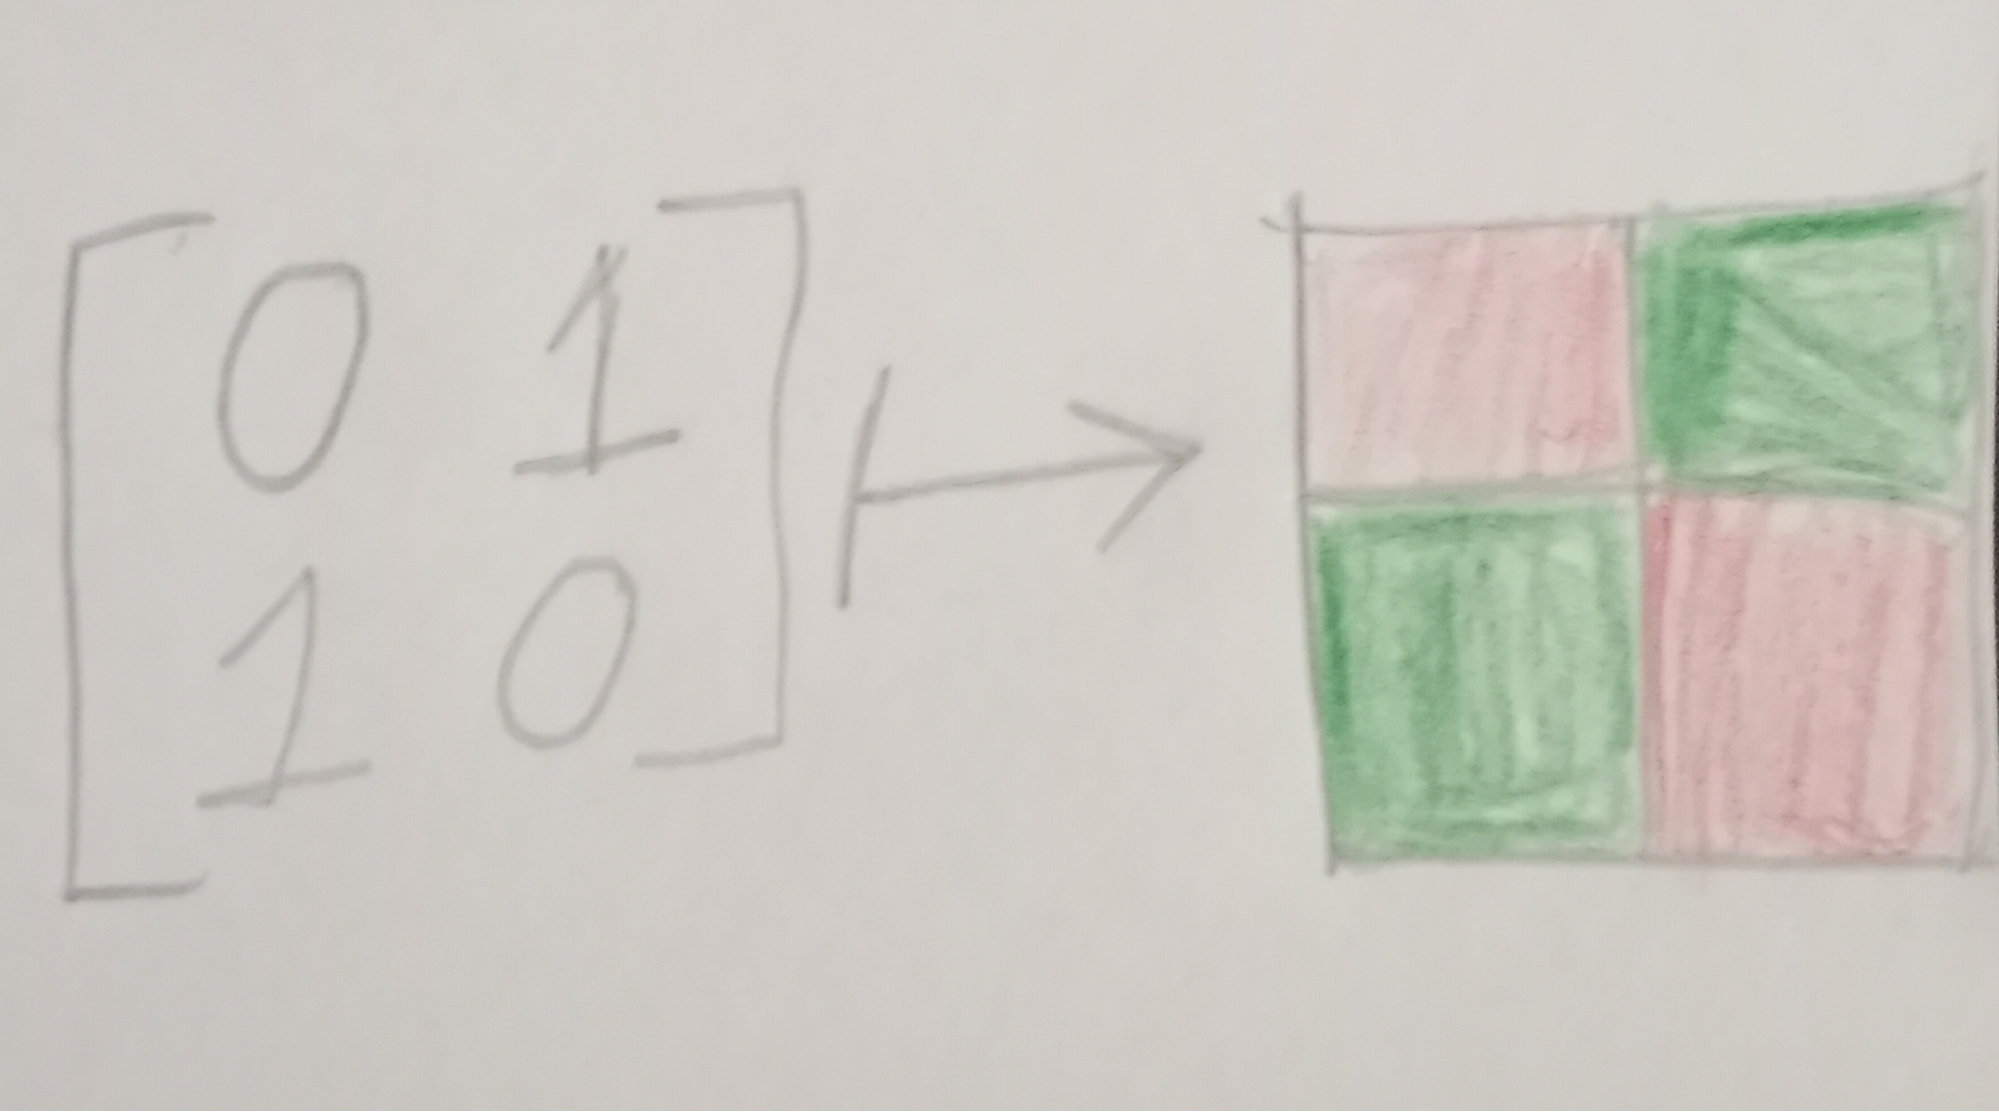 [0 1
1 0] ↦